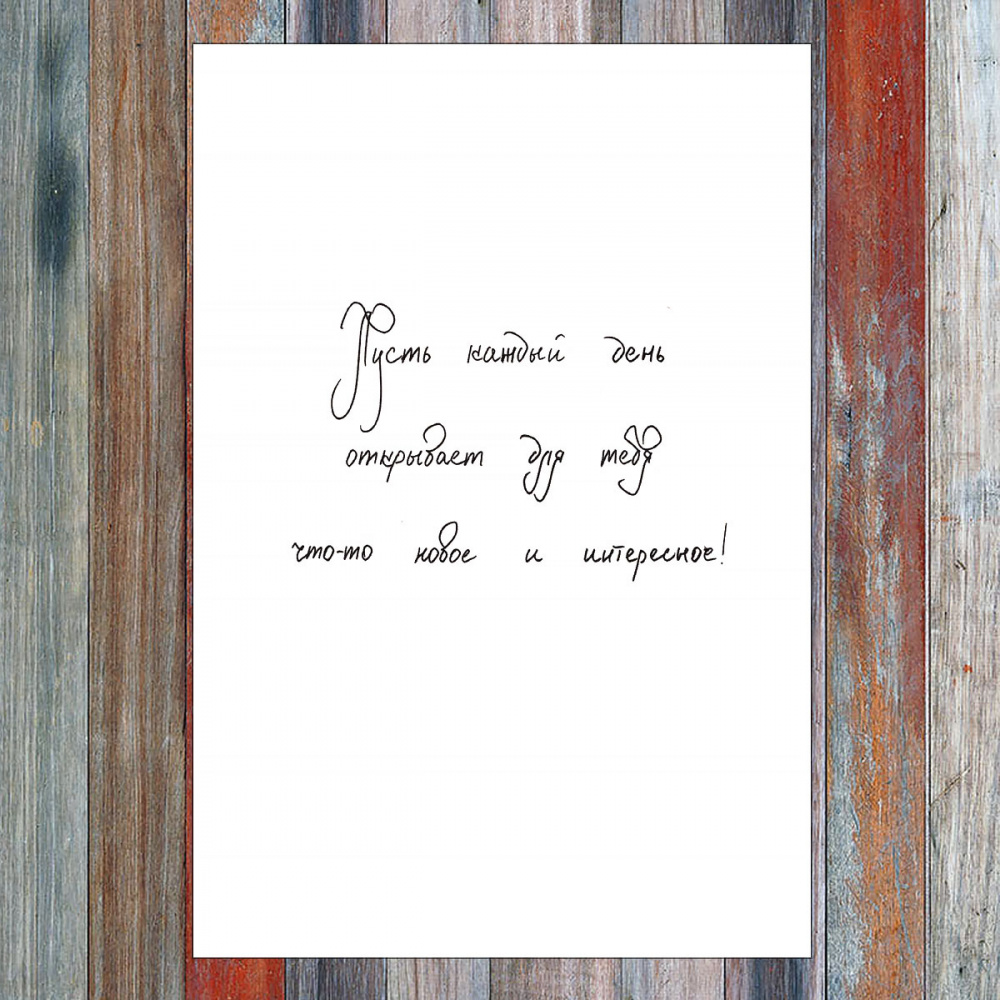 Пусть каждый день
открывает для тебя
что-то новое и интересное!